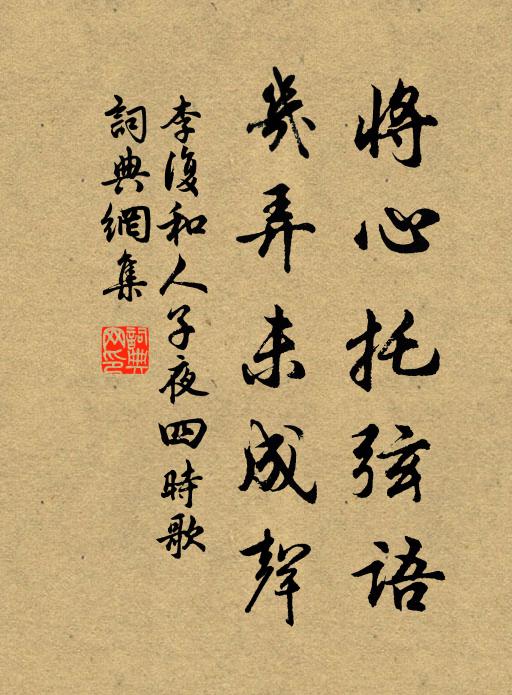 将心托弦語
幾弄未成聲
李復和人子夜四時歌
詞典網集
詞典網印